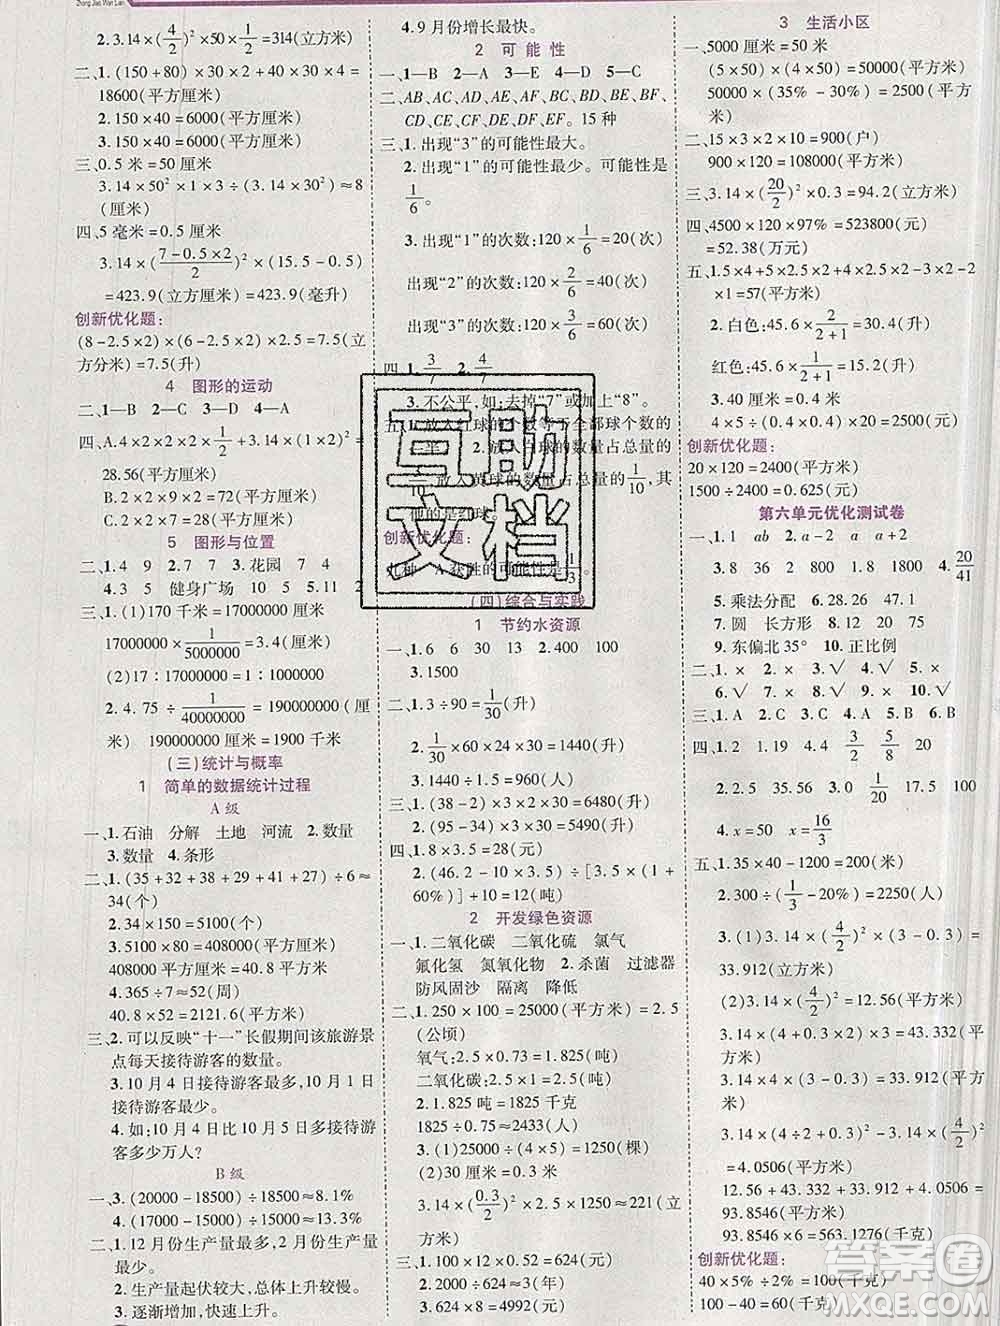 Zhong Jiao Wan Lan
2.3.14×(4/2)²×50×1/2=314(立方米)
二、1.(150+80)×30×2+30×30×2×2=
18600(平方厘米)
2.150×40=6000(平方厘米)
3.150×40=6000(平方厘米)
三、0.5米=50厘米
3.14×50²×1×3÷(3.14×30²)≈8
(厘米)
四、5毫米=0.5厘米
3.14×((7-0.5×2)/2)²×(15.5-0.5)
=423.9(立方厘米)=423.9(毫升)
创新优化题:
(8-2.5×2)×(6-2.5×2)×2.5=7.5(立
方分米)=7.5(升)
4 图形的运动
二、1—B 2—D 3—C 4—A
四、A.4×2×2×1/2+3.14×(1×2)²=
28.56(平方厘米)
B.2×2×9×2=72(平方厘米)
C.2×7×2=28(平方厘米)
5 图形与位置
二、1.4 9 2.7 7 3.花园 7 7
4.5 5 健身广场 10 5
三、1.(1)170千米=17000000厘米
17000000×1/5000000=3.4(厘米)
(2)17:17000000=1:1000000
2.4.75÷1/40000000=190000000(厘
米) 190000000厘米=1900千米
(三)统计与概率
1 简单的数据统计过程
A级
一、1.石油 分解 土地 河流 2.数量
3.数量 4.条形
二、1.(35+32+38+27+31+41)÷6=
34(个)
2.34×150=5100(个)
3.5100×80=408000(平方厘米)
408000平方厘米=40.8平方米
4.365÷7≈52(周)
40.8×52=2121.6(平方米)
三、2.可以反映“十一”长假期间该旅游景
点每天接待游客的数量。
3.10月4日接待游客最多,10月1日
接待游客最少。
4.如:10月4日比10月5日多接待游
客多少万人?
B级
一、3.(20000-18500)÷18500≈8.1%
4.(17000-15000)÷15000≈13.3%
二、1.12月份生产量最多,2月份生产量
最少。
2.生产量起伏较大,总体上升较慢。
3.逐渐增加,快速上升。
4.9月份增长最快。
2 可能性
一、1—B 2—A 3—E 4—D 5—C
二、AB、AC、AD、AE、AF、BC、BD、BE、BF、
CD、CE、CF、DE、DF、EF。15种
三、1.出现“3”的可能性最大。
2.出现“1”的可能性最少。可能性是
1/6。
3.出现“1”的次数:120×1/6=20(次)
出现“2”的次数:120×2/6=40(次)
出现“3”的次数:120×3/6=60(次)
四、1.3/7 2.4/7
3.不公平,如:去掉“7”或加上“8”。
数等于全部球个数的
球的数量占总量的
放入黄球的数量占总量的1/10,其
他的是红球。
创新优化题:
A获胜的可能性是1/3。
(四)综合与实践
1 节约水资源
一、1.6 6 30 13 2.400 100
3.1500
二、1.3÷90=1/30(升)
2.1/30×60×30×24=1440(升)
3.1440÷1.5=960(人)
三、1.(38-2)×3×60=6480(升)
2.(95-34)×3×30=5490(升)
四、1.8×3.5=28(元)
2.(46.2-10×3.5)÷[3.5×(1+
60%)]+10=12(吨)
2 开发绿色资源
一、1.二氧化碳 二氧化硫 氯气
氟化氢 氮氧化物 2.杀菌 过滤器
防风固沙 隔离 降低
二、1.250×100=25000(平方米)=2.5
(公顷)
氧气:2.5×0.73=1.825(吨)
二氧化碳:2.5×1=2.5(吨)
2.1.825吨=1825千克
1825÷0.75≈2433(人)
3.(1)25000÷(4×5)=1250(棵)
(2)30厘米=0.3米
3.14×(0.3/2)²×2.5×1250≈221(立
方米)
三、1.100×12×0.52=624(元)
2.2000÷624≈3(年)
3.624×8=4992(元)
3 生活小区
一、5000厘米=50米
(5×50)×(4×50)=50000(平方米)
50000×(35%-30%)=2500(平方
米)
二、15×3×2×10=900(户)
900×120=108000(平方米)
三、3.14×(20/2)²×0.3=94.2(立方米)
四、4500×120×97%=523800(元)
=52.38(万元)
五、1.5×4+5×2.5×2+2.5×3×2-2
×1=57(平方米)
2.白色:45.6×2/(2+1)=30.4(升)
红色:45.6×1/(2+1)=15.2(升)
3.2×2=4(平方米)
4×5÷(0.4×0.4)×20=2500(元)
创新优化题:
20×120=2400(平方米)
1500÷2400=0.625(元)
第六单元优化测试卷
一、1.1 ab 2.a a+2
3.8 38 12 40 4.1.2 20/41
5.乘法分配 6.28.26 47.1
7.圆 长方形 8.40 20
9.东偏北35° 10.正比例
二、1.× 2.× 3.√ 4.√ 5.×
6.√ 7.× 8.√ 9.× 10.√
三、1.A 2.C 3.B 4.B 5.A
四、1.2 1.19 4 3/2 5/8 20
2.2.5 35 4 1/20 17.5 100
4.x=50 x=16/3
五、1.35×40-1200=200(米)
2.300÷(1/3-20%)=2250(人)
3.(1)3.14×(4/2)²×(3-0.3)=
33.912(立方米)
(2)3.14×(4/2)²=12.56(平方米)
3.14×(4+0.3×2)×3=43.332(平
方米)
3.14×4×(3-0.3)=33.912(平方
米)
3.14×(4÷2+0.3)²-3.14×(4/2)²
=4.0506(平方米)
12.56+43.332+33.912+4.0506=
93.8546(平方米)
93.8546×6=563.1276(千克)
创新优化题:
40×5%÷2%=100(千克)
100-40=60(千克)
互助
文档
答案圈
MXQE.COM